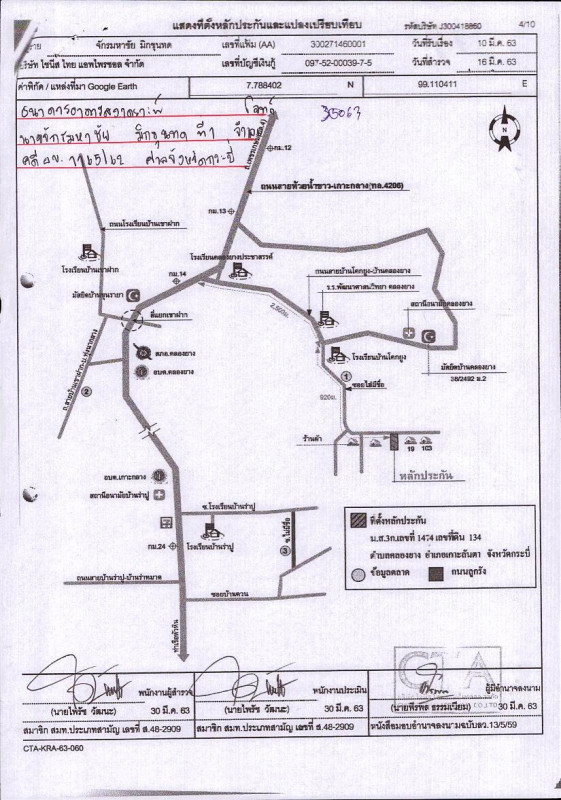 แสดงที่ตั้งหลักประกันและแปลงเปรียบเทียบ
รหัสบริษัท J300418860
4/10
จักรมหาชัย มิกขุนทด
เลขที่แฟ้ม (AA)
300271460001
วันที่รับเรื่อง
10 มี.ค. 63
บริษัท ไชนีส ไทย แอพไพรซอล จำกัด
เลขที่บัญชีเงินกู้
097-52-00039-7-5
วันที่สำรวจ
16 มี.ค. 63
ค่าพิกัด / แหล่งที่มา Google Earth
7.788402
N
99.110411
E
ธนาคารอาคารสงเคราะห์
โจทก์
นายจักรมหาชัย มิกขุนทด ที่1
ศาลจังหวัดกระบี่
N
กม.12
ถนนสายห้วยน้ำขาว-เกาะกลาง(ทล.4206)
กม.13
ถนนโรงเรียนบ้านเขาฝาก
โรงเรียนคลองยางประชาสรรค์
โรงเรียนบ้านเขาฝาก
กม.14
ถนนสายบ้านโคกยูง-บ้านคลองยาง
ร.ร.พัฒนาศาสนวิทยา คลองยาง
มัสยิดบ้านขุนรายา
สถานีอนามัยคลองยาง
สี่แยกเขาฝาก
2,800ม.
สภอ.คลองยาง
โรงเรียนบ้านโคกยูง
มัสยิดบ้านคลองยาง
36/2492 ม.2
อบต.คลองยาง
1
ซอยไม่มีชื่อ
2
920ม.
ร้านค้า
19
103
หลักประกัน
อบต.เกาะกลาง
สถานีอนามัยบ้านร่าปู
ซ.โรงเรียนบ้านร่าปู
ซ.ไม่มีชื่อ
กม.24
โรงเรียนบ้านร่าปู
3
ที่ตั้งหลักประกัน
น.ส.3ก.เลขที่ 1474 เลขที่ดิน 134
ตำบลคลองยาง อำเภอเกาะลันตา จังหวัดกระบี่
ข้อมูลตลาด
ถนนลูกรัง
ถนนสายบ้านร่าปู-บ้านร่าหมาด
ซอยบ้านควน
ท่าเรือหัวหิน
CTA
CO.,LTD
พนักงานผู้สำรวจ
พนักงานประเมิน
ผู้มีอำนาจลงนาม
(นายไพรัช วัฒนะ)
30 มี.ค. 63
(นายไพรัช วัฒนะ)
30 มี.ค. 63
30 มี.ค. 63
สมาชิก สมท.ประเภทสามัญ เลขที่ ส.48-2909
สมาชิก สมท.ประเภทสามัญ เลขที่ ส.48-2909
หนังสือมอบอำนาจลงนามฉบับลว.13/5/59
CTA-KRA-63-060